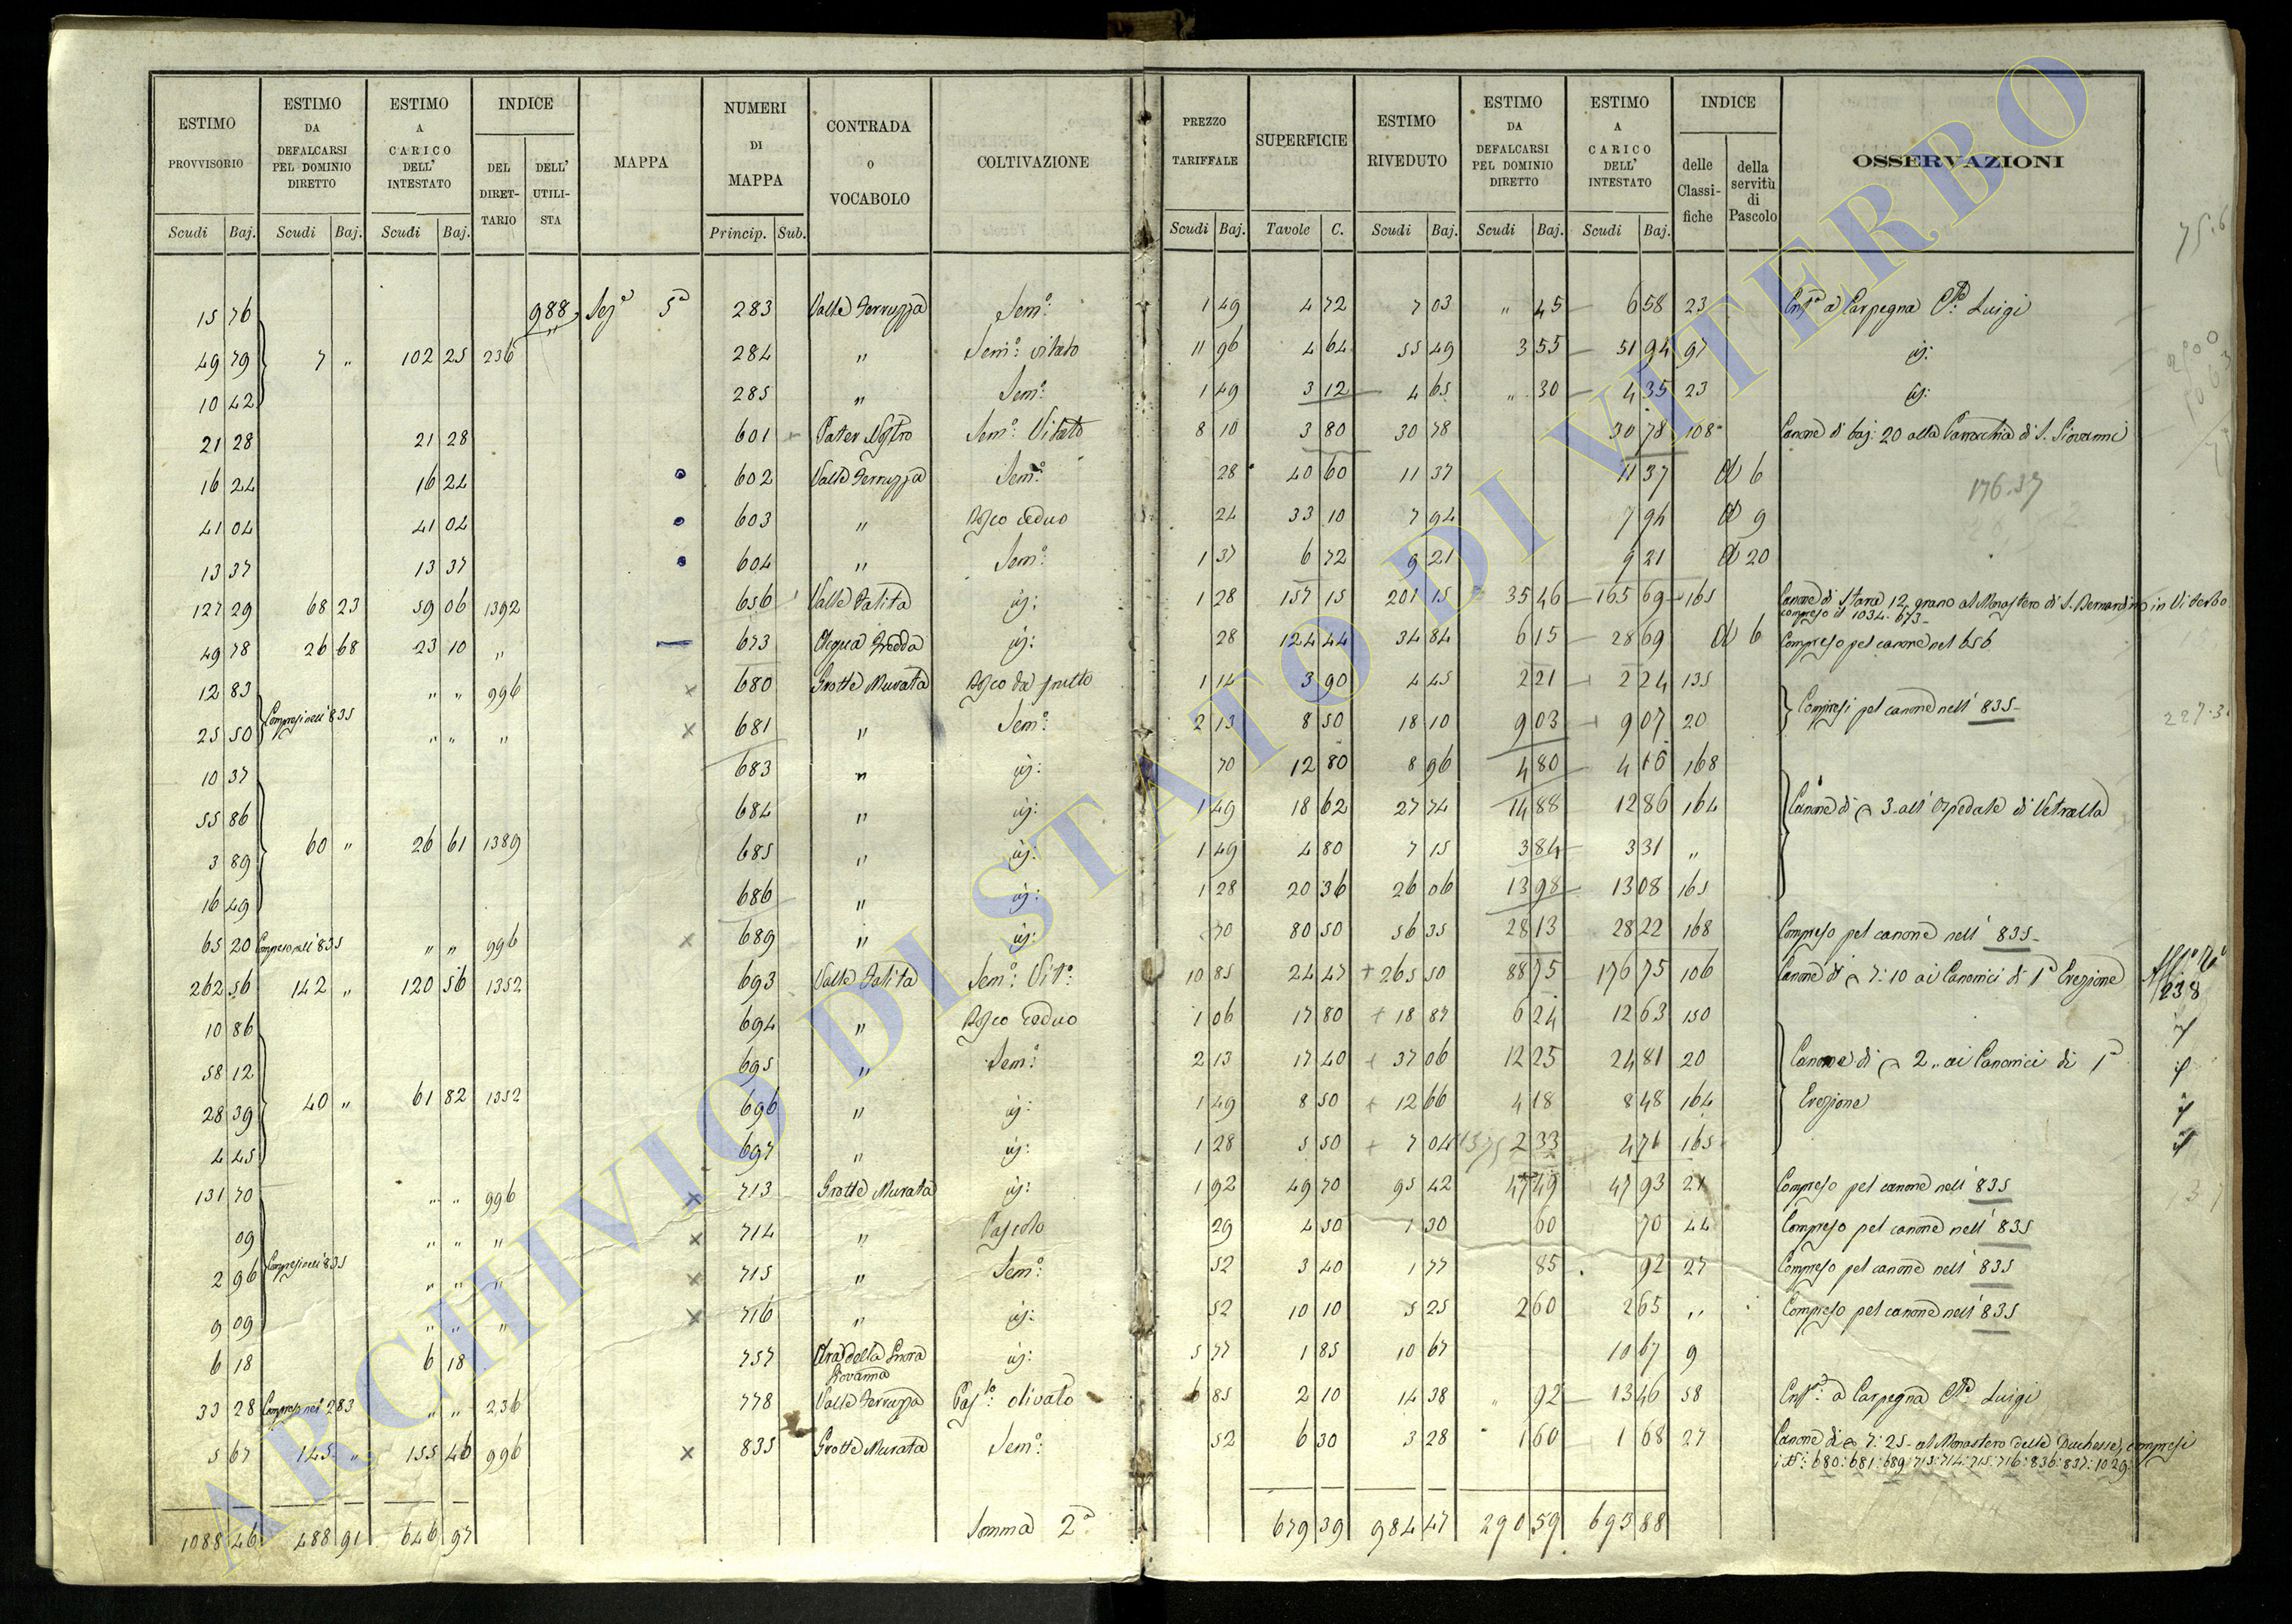 ESTIMO PROVVISORIO | ESTIMO DA DEFALCARSI PEL DOMINIO DIRETTO | ESTIMO A CARICO DELL' INTESTATO | INDICE | MAPPA | NUMERI DI MAPPA | CONTRADA O VOCABOLO | COLTIVAZIONE | PREZZO TARIFFALE | SUPERFICIE | ESTIMO RIVEDUTO | ESTIMO DA DEFALCARSI PEL DOMINIO DIRETTO | ESTIMO A CARICO DELL' INTESTATO | INDICE | OSSERVAZIONI
DEL DIRETTARIO | DELL' UTILISTA | delle Classifiche | della servitù di Pascolo
Scudi | Baj. | Scudi | Baj. | Scudi | Baj. | Princip. | Sub. | Scudi | Baj. | Tavole | C. | Scudi | Baj. | Scudi | Baj. | Scudi | Baj.
15 76 | 988 | Sez.e 5a | 283 | Valle Ferruzza | Sem.o | 1 49 | 4 72 | 7 03 | " 45 | 6 58 | 23 | Enf.a a Carpegna C.te Luigi
49 79 | 7 " | 102 25 | 236 | 284 | " | Sem.o vitato | 11 96 | 4 64 | 55 49 | 3 55 | 51 94 | 97 | id:
10 42 | 285 | " | Sem.o | 1 49 | 3 12 | 4 65 | " 30 | 4 35 | 23 | id:
21 28 | 21 28 | 601 | Pater Nostro | Sem.o Vitato | 8 10 | 3 80 | 30 78 | 30 78 | 108 | Canone di baj: 20 alla Parrochia di S. Giovanni
16 24 | 16 24 | 602 | Valle Ferruzza | Sem.o | 28 | 40 60 | 11 37 | 11 37 | A 6 | 176.37
41 04 | 41 04 | 603 | " | Bosco ceduo | 24 | 33 10 | 7 94 | 7 94 | A 9
13 37 | 13 37 | 604 | " | Sem.o | 1 37 | 6 72 | 9 21 | 9 21 | A 20
127 29 | 68 23 | 59 06 | 1392 | 656 | Valle Falita | id: | 1 28 | 157 15 | 201 15 | 35 46 | 165 69 | 165 | Canone di Stara 12 grano al Monastero di S. Bernardino in Viterbo
compreso il 1034. 673
49 78 | 26 68 | 23 10 | " | 673 | Acqua Fredda | id: | 28 | 124 44 | 34 84 | 6 15 | 28 69 | A 6 | Compreso pel canone nel 656
12 83 | Compresi nell' 835 | " " | 996 | 680 | Grotte Murata | Bosco da frutto | 1 14 | 3 90 | 4 45 | 2 21 | 2 24 | 135 | Compresi pel canone nell' 835
25 50 | " " | " | 681 | " | Sem.o | 2 13 | 8 50 | 18 10 | 9 03 | 9 07 | 20
10 37 | 683 | " | id: | 70 | 12 80 | 8 96 | 4 80 | 4 16 | 168
55 86 | 684 | " | id: | 1 49 | 18 62 | 27 74 | 14 88 | 12 86 | 164 | Canone di 3 all' Ospedale di Vetralla
3 89 | 60 " | 26 61 | 1389 | 685 | " | id: | 1 49 | 4 80 | 7 15 | 3 84 | 3 31 | "
16 49 | 686 | " | id: | 1 28 | 20 36 | 26 06 | 13 98 | 13 08 | 165
65 20 | Compreso nell' 835 | " " | 996 | 689 | " | id: | 70 | 80 50 | 56 35 | 28 13 | 28 22 | 168 | Compreso pel canone nell' 835
262 56 | 142 " | 120 56 | 1352 | 693 | Valle Falita | Sem.o Vit.o | 10 85 | 24 47 | 265 50 | 88 75 | 176 75 | 106 | Canone di 7:10 ai Canonici di 1a Erezione | 238
10 86 | 694 | " | Bosco ceduo | 1 06 | 17 80 | 18 87 | 6 24 | 12 63 | 150
58 12 | 695 | " | Sem.o | 2 13 | 17 40 | 37 06 | 12 25 | 24 81 | 20 | Canone di 2 " ai Canonici di 1a
28 39 | 40 " | 61 82 | 1352 | 696 | " | id: | 1 49 | 8 50 | 12 66 | 4 18 | 8 48 | 164 | Erezione
4 45 | 697 | " | id: | 1 28 | 5 50 | 7 04 | 2 33 | 4 71 | 165
131 70 | " " | 996 | 713 | Grotte Murata | id: | 1 92 | 49 70 | 95 42 | 47 49 | 47 93 | 21 | Compreso pel canone nell' 835
09 | " " | " | 714 | " | Pascolo | 29 | 4 50 | 1 30 | 60 | 70 | 44 | Compreso pel canone nell' 835
2 96 | Compresi nell' 835 | " " | " | 715 | " | Sem.o | 52 | 3 40 | 1 77 | 85 | 92 | 27 | Compreso pel canone nell' 835
9 09 | " " | " | 716 | " | id: | 52 | 10 10 | 5 25 | 2 60 | 2 65 | " | Compreso pel canone nell' 835
6 18 | 6 18 | 757 | Ara della Snora Giovanna | id: | 5 77 | 1 85 | 10 67 | 10 67 | 9
33 28 | Compreso nel 283 | " " | 236 | 778 | Valle Ferruzza | Pas.lo olivato | 6 85 | 2 10 | 14 38 | " 92 | 13 46 | 58 | Enf.a a Carpegna C.te Luigi
5 67 | 145 " | 155 40 | 996 | 835 | Grotte Murata | Sem.o | 52 | 6 30 | 3 28 | 1 60 | 1 68 | 27 | Canone di 7:25 al Monastero delle Duchesse, compresi
i N.i: 680: 681: 689: 713: 714: 715: 716: 836: 837: 1029.
1088 46 | 488 91 | 646 97 | Somma 2a | 679 39 | 984 47 | 290 59 | 693 88
ARCHIVIO DI STATO DI VITERBO